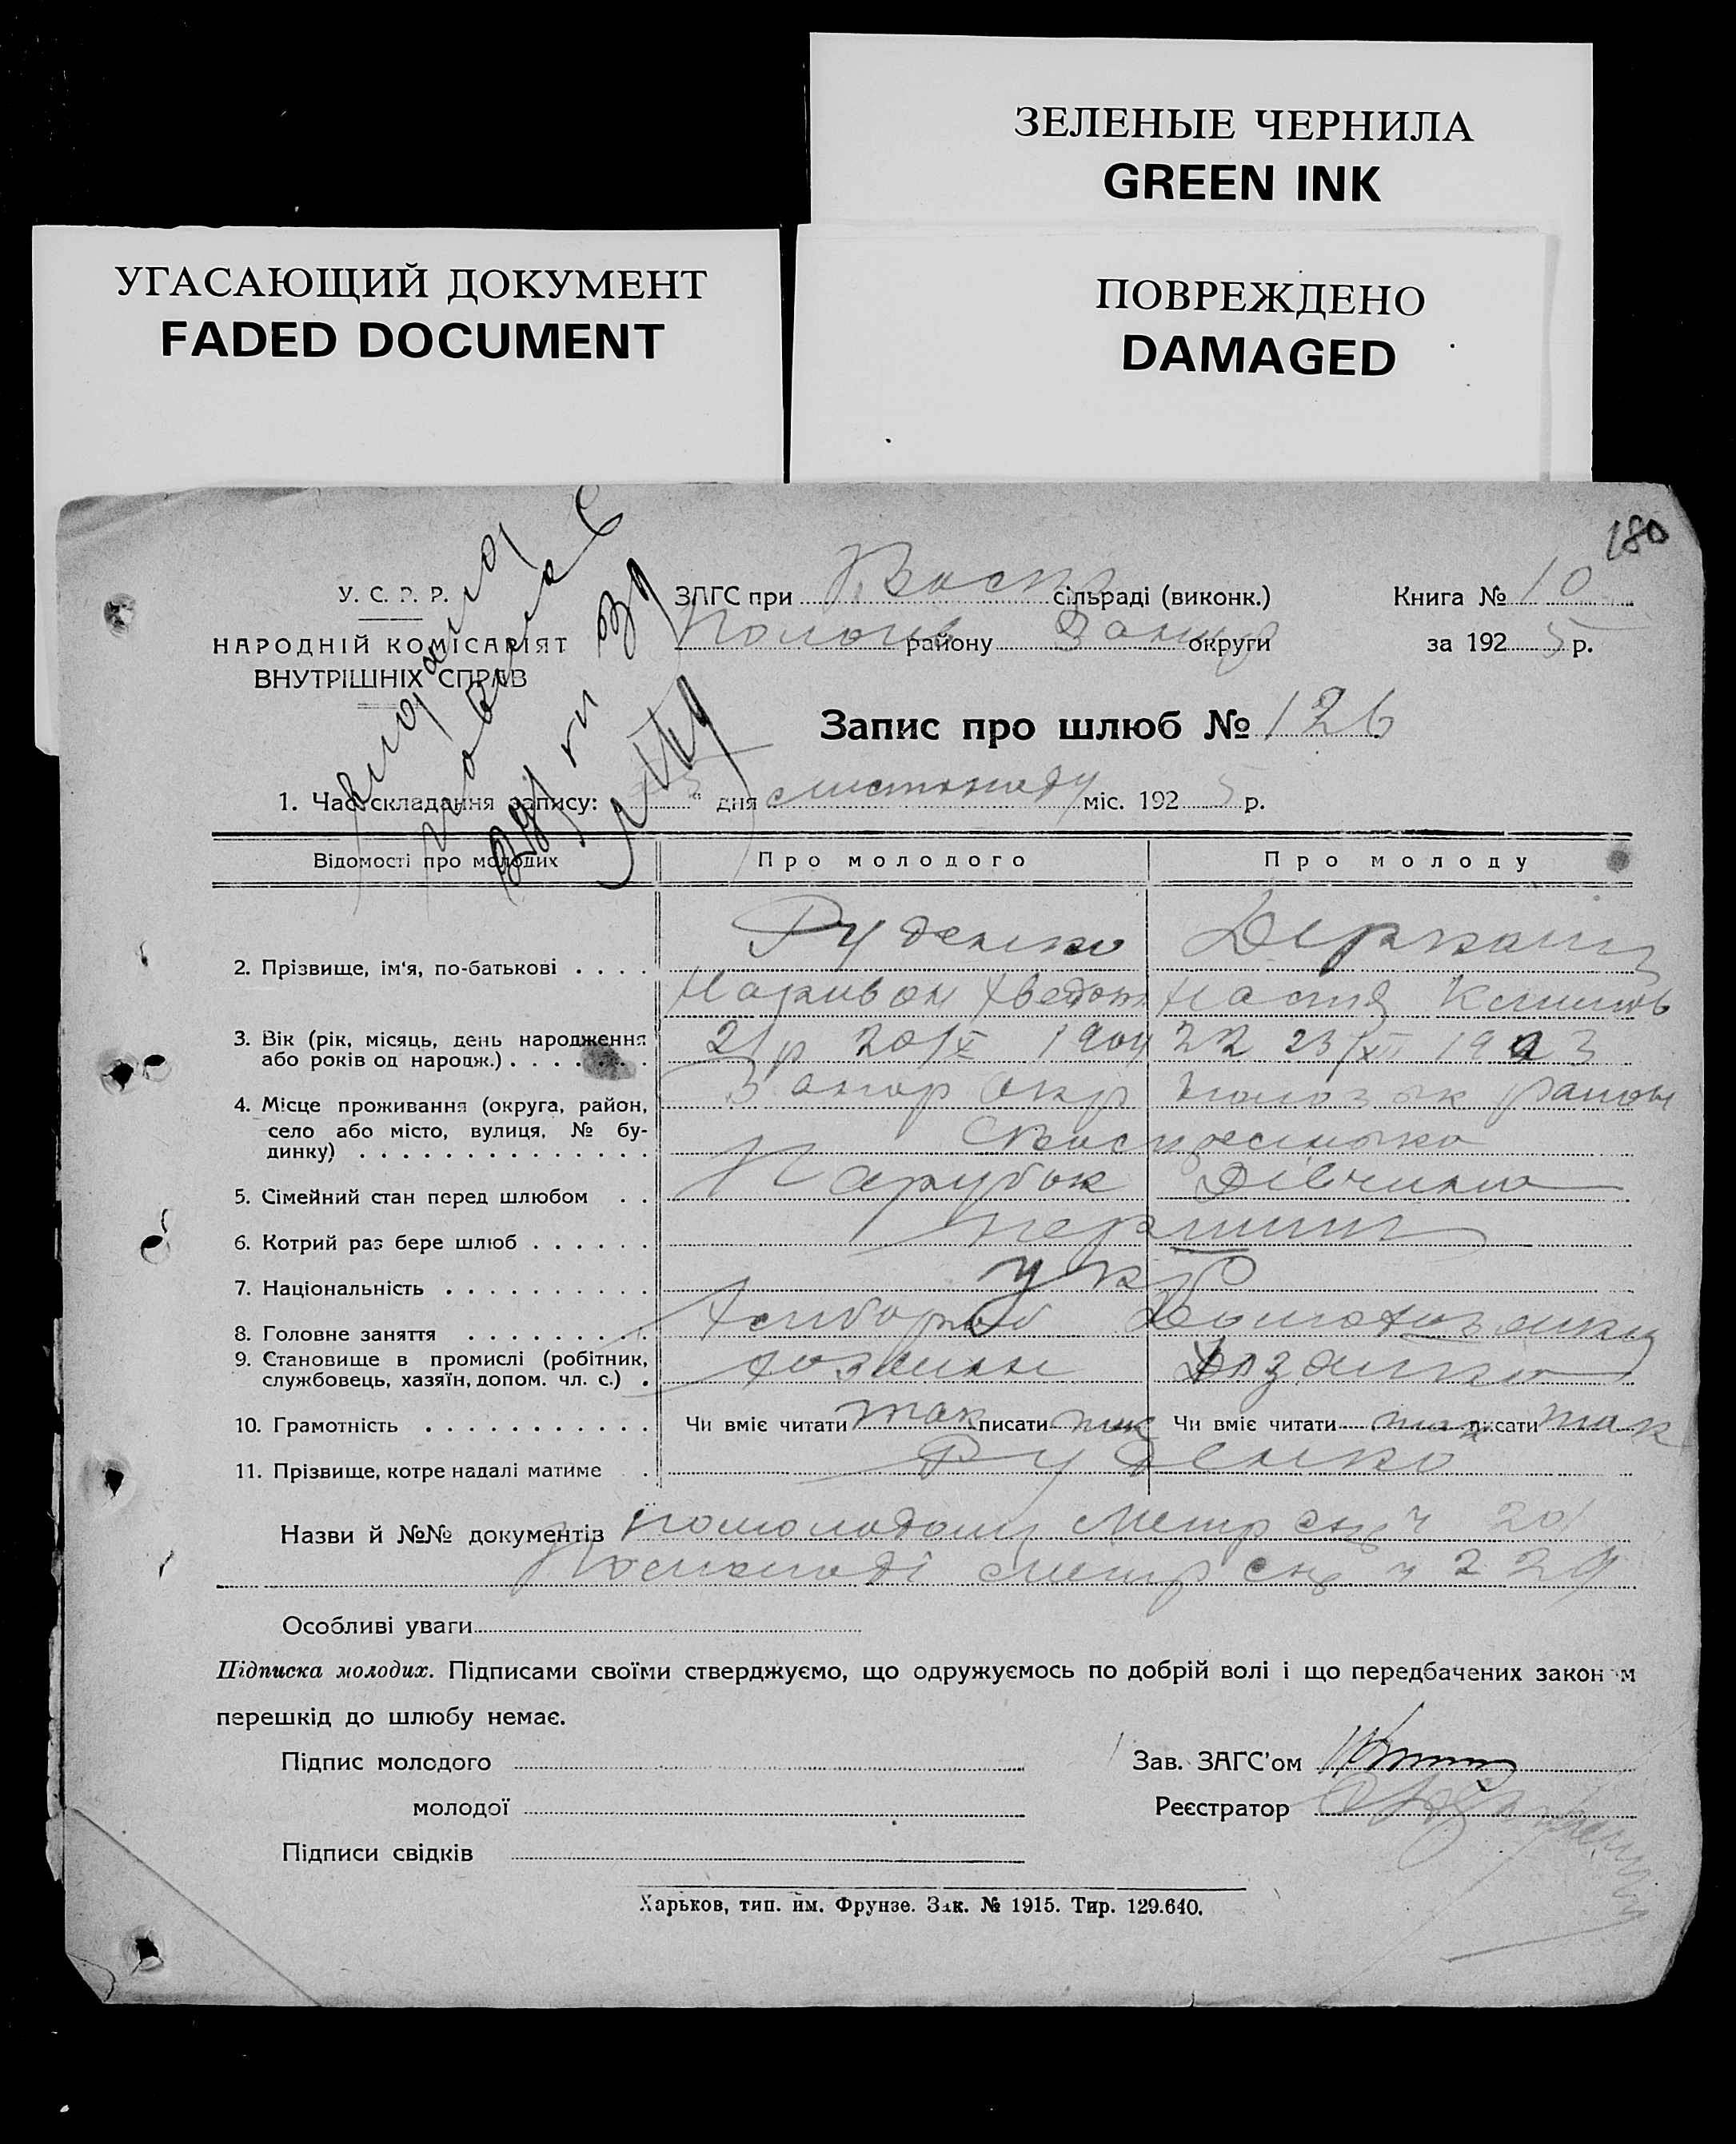 ЗЕЛЕНЫЕ ЧЕРНИЛА
GREEN INK
УГАСАЮЩИЙ ДОКУМЕНТ
FADED DOCUMENT
ПОВРЕЖДЕНО
DAMAGED
180
У. С. Р. Р.
НАРОДНІЙ КОМІСАРІЯТ
ВНУТРІШНІХ СПРАВ
ЗАГС при Воскр сільраді (виконк.)
Пологів району Запор округи
Книга № 10
за 1925 р.
Запис про шлюб № 126
1. Час складання запису: " дня листопаду міс. 1925 р.
Відомості про молодих Про молодого Про молоду
2. Прізвище, ім'я, по-батькові . . . . Руденко Деркач
Настя
3. Вік (рік, місяць, день народження 21 р 20/X 1904 22 23/XII 1903
або років од народж.) . . . . . . .
4. Місце проживання (округа, район, Запор окр район
село або місто, вулиця, № бу-
динку) . . . . . . . . . . . . . .
5. Сімейний стан перед шлюбом . . Парубок Дівчина
6. Котрий раз бере шлюб . . . . . . перший
7. Національність . . . . . . . . . . укр
8. Головне заняття . . . . . . . . . Хлібороб
9. Становище в промислі (робітник, хозяин хозяйка
службовець, хазяїн, допом. чл. с.) .
10. Грамотність . . . . . . . . . . . Чи вміє читати так писати так Чи вміє читати так писати так
11. Прізвище, котре надалі матиме . Руденко
Назви й №№ документів По молодому Метр ч 201
По молоді Метр ч 229
Особливі уваги
Підписка молодих. Підписами своїми стверджуємо, що одружуємось по добрій волі і що передбачених законом
перешкід до шлюбу немає.
Підпис молодого
Зав. ЗАГС'ом
молодої
Реєстратор
Підписи свідків
Харьков, тип. им. Фрунзе. Зак. № 1915. Тир. 129.640.